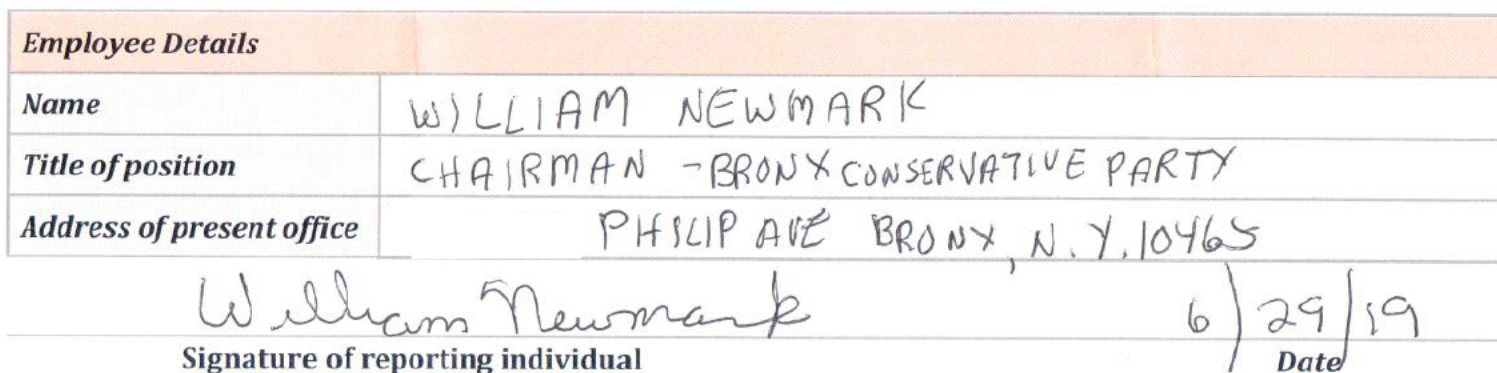 Employee Details
Name WILLIAM NEWMARK
Title of position CHAIRMAN - BRONX CONSERVATIVE PARTY
Address of present office PHILIP AVE BRONX, N.Y. 10465
William Newmark 6/29/19
Signature of reporting individual Date